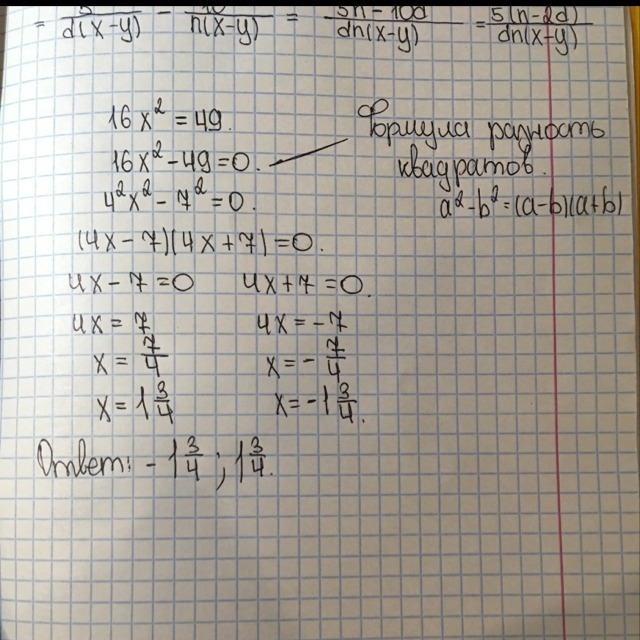 = 5/d(x-y) - 10/n(x-y) = 5n-10d/dn(x-y) = 5(n-2d)/dn(x-y)
16x² = 49.
16x² - 49 = 0.
Формула разность квадратов.
a² - b² = (a-b)(a+b)
4²x² - 7² = 0.
(4x - 7)(4x + 7) = 0.
4x - 7 = 0 4x + 7 = 0.
4x = 7 4x = -7
x = 7/4 x = - 7/4
x = 1 3/4 x = -1 3/4.
Ответ: - 1 3/4 ; 1 3/4.